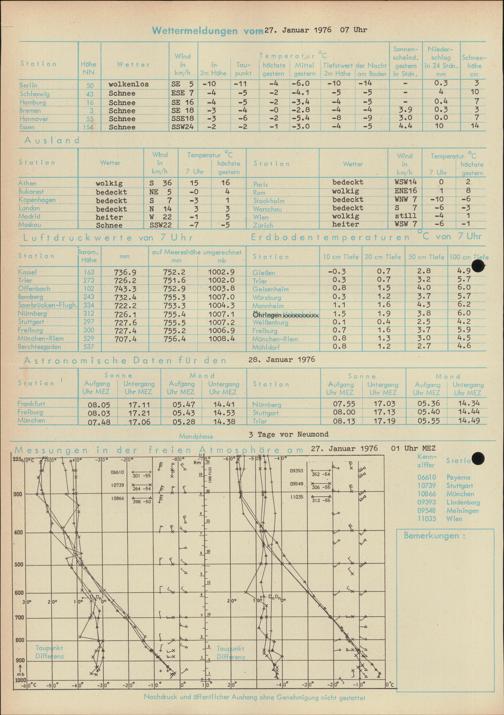 Wettermeldungen vom 27. Januar 1976 07 Uhr
Station Höhe NN Wetter Wind in km/h Temperatur °C Sonnenscheind. gestern in Stdn. Niederschlag in 24 Stdn. mm Schneehöhe cm
In 2m Höhe Taupunkt höchste gestern Mittel gestern Tiefstwert der Nacht 2m Höhe am Boden
Berlin 50 wolkenlos SE 5 -10 -11 -4 -6.0 -10 -14 - 0.3 3
Schleswig 43 Schnee ESE 7 -4 -5 -2 -4.1 -5 -5 - 4 10
Hamburg 16 Schnee SE 16 -4 -5 -2 -3.4 -4 -5 - 0.4 7
Bremen 3 Schnee SE 18 -3 -4 -0 -2.8 -4 -4 3.9 0.3 3
Hannover 55 Schnee SSE18 -3 -6 -2 -5.4 -8 -9 3.0 0.0 7
Essen 154 Schnee SSW24 -2 -2 -1 -3.0 -4 -5 4.4 10 14
Ausland
Station Wetter Wind in km/h Temperatur °C 7 Uhr höchste gestern Station Wetter Wind in km/h Temperatur °C 7 Uhr höchste gestern
Athen wolkig S 36 15 16 Paris bedeckt WSW14 0 2
Bukarest bedeckt NE 5 -0 4 Rom wolkig ENE16 1 8
Kopenhagen bedeckt S 7 -3 1 Stockholm bedeckt WNW 7 -10 -6
London bedeckt N 14 3 3 Warschau bedeckt S 7 -6 -3
Madrid heiter W 22 -1 5 Wien wolkig still -4 1
Moskau Schnee SSW22 -7 -5 Zürich heiter WSW 7 -6 -1
Luftdruckwerte von 7 Uhr Erdbodentemperaturen °C von 7 Uhr
Station Barom. Höhe mm auf Meereshöhe umgerechnet mm mb Station 10 cm Tiefe 20 cm Tiefe 50 cm Tiefe 100 cm Tiefe
Kassel 163 736.9 752.2 1002.9 Gießen -0.3 0.7 2.8 4.9
Trier 273 726.2 751.6 1002.0 Trier 0.3 0.7 3.2 5.7
Offenbach 102 743.3 752.9 1003.8 Geisenheim 0.8 1.5 4.0 6.0
Bamberg 243 732.4 755.3 1007.0 Würzburg 0.3 1.2 3.7 5.7
Saarbrücken-Flugh. 334 722.2 753.3 1004.3 Mannheim 1.1 1.6 4.3 6.2
Nürnberg 312 726.1 755.4 1007.1 Öhringen 1.5 1.9 3.8 6.0
Stuttgart 297 727.6 755.5 1007.2 Weißenburg 0.1 0.4 2.5 4.2
Freiburg 300 727.4 755.2 1006.9 Freiburg 0.7 1.6 3.7 5.9
München-Riem 529 707.4 756.4 1008.4 München-Riem 0.8 1.3 3.0 4.5
Berchtesgaden 557 Mühldorf 0.8 1.2 2.7 4.6
Astronomische Daten für den 28. Januar 1976
Station Sonne Mond Station Sonne Mond
Aufgang Uhr MEZ Untergang Uhr MEZ Aufgang Uhr MEZ Untergang Uhr MEZ Aufgang Uhr MEZ Untergang Uhr MEZ Aufgang Uhr MEZ Untergang Uhr MEZ
Frankfurt 08.05 17.11 05.47 14.41 Nürnberg 07.55 17.03 05.36 14.34
Freiburg 08.03 17.21 05.43 14.53 Stuttgart 08.00 17.13 05.40 14.44
München 07.48 17.06 05.28 14.38 Trier 08.13 17.19 05.55 14.49
Mondphase 3 Tage vor Neumond
Messungen in der freien Atmosphäre am 27. Januar 1976 01 Uhr MEZ
Kennziffer Station
06610 Payerne
10739 Stuttgart
10866 München
09393 Lindenberg
09548 Meiningen
11035 Wien
Bemerkungen:
06610
10739
10866
09393
09548
11035
Taupunkt Differenz
Taupunkt Differenz
Nachdruck und öffentlicher Aushang ohne Genehmigung nicht gestattet